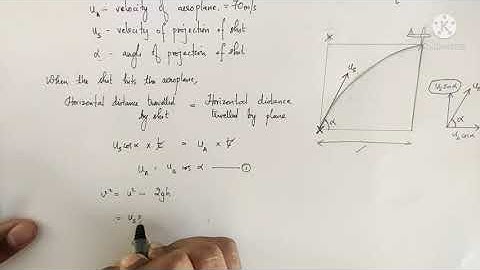 u_A - velocity of aeroplane. = 70m/s
u_s - velocity of projection of shot
α - angle of projection of shot
When the shot hits the aeroplane,
Horizontal distance travelled by shot = Horizontal distance travelled by plane
u_s cos α × t = u_A × t
u_A = u_s cos α ——— ①
v² = u² - 2gh
= u_s
X
A
u_s
α
u_s sin α
u_s
α
u_s cos α